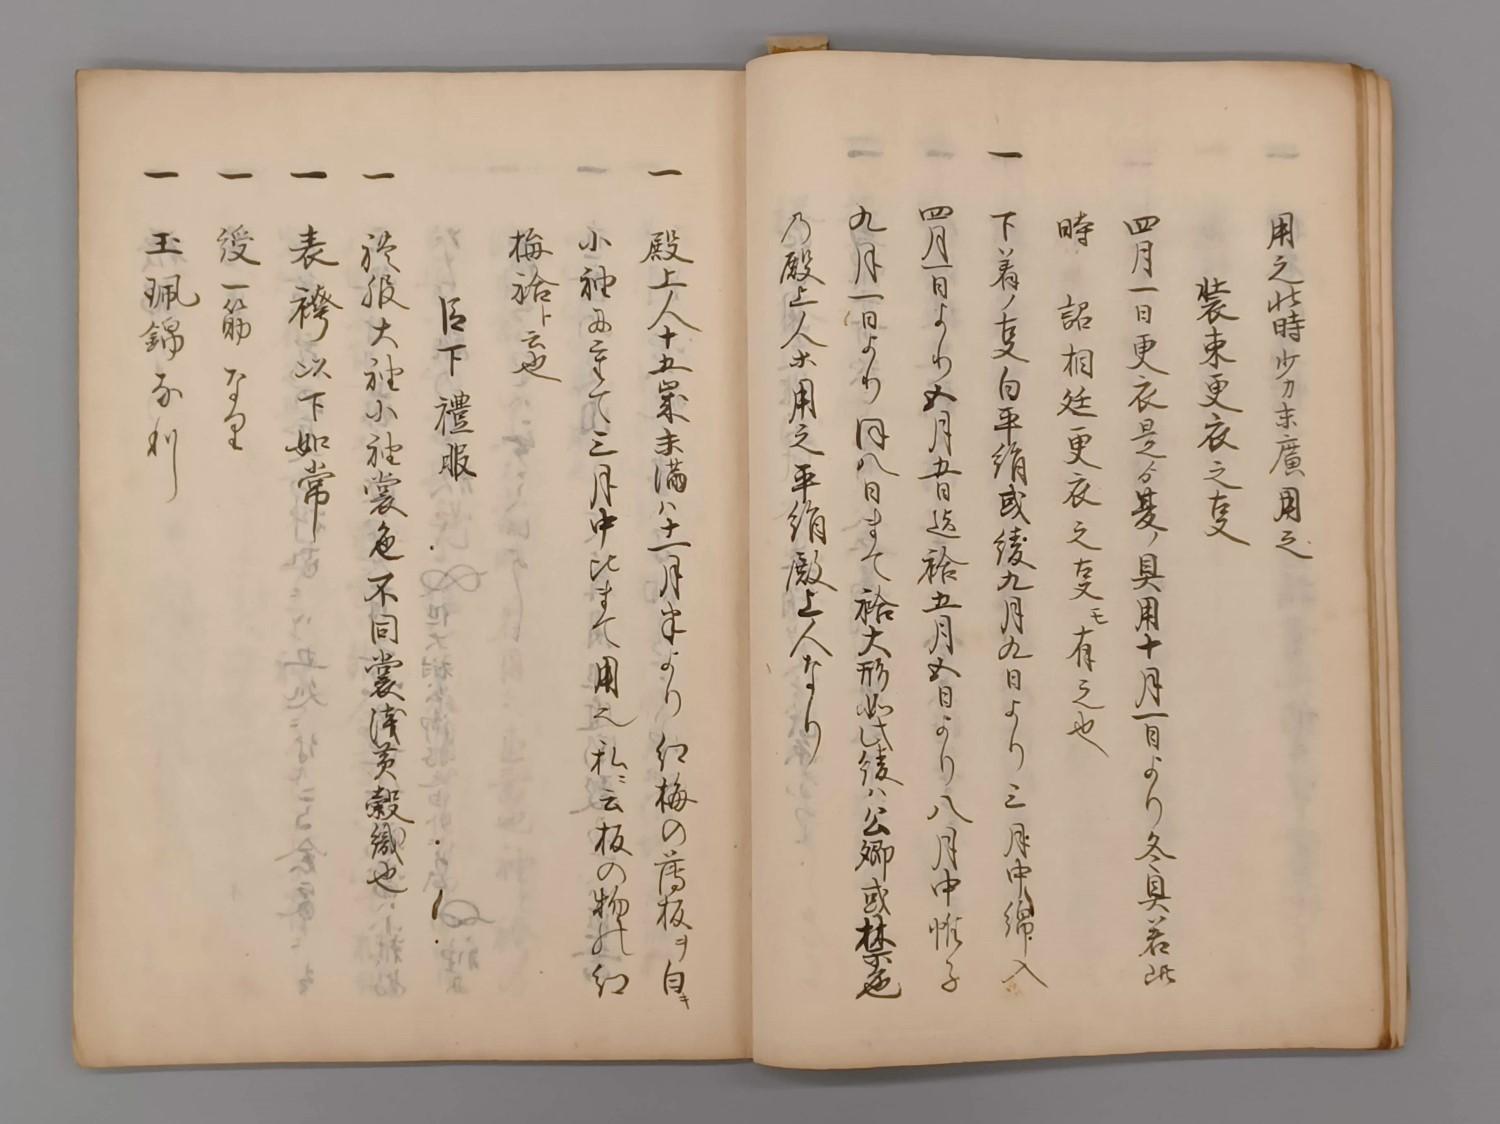 用之此時少力末廣用之
装束更衣之事
四月一日更衣是ゟ夏ノ具用十月一日より冬具若此
時 詔相廷更衣之事モ有之也
一 下着ノ事白平絹或綾九月九日より三月中綿入
四月一日より五月五日迄袷五月五日より八月中帷子
九月一日より同八日まて袷大形如此綾ハ公卿或禁色
乃殿上人ホ用之平絹殿上人なり
一 殿上人十五歳未満ハ十一月半より紅梅の薄板ヲ白キ
小袖に重て三月中比まて用之私ニ云板の物紅
梅袷ト云也
臣下禮服
一 於服大袖小袖裳色不同裳浅黄縠織也
一 表袴以下如常
一 綬一筋なり
一 玉珮錦なり